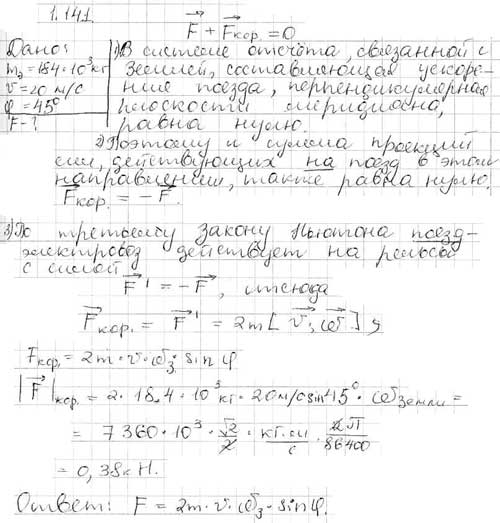 1.141
F⃗ + F⃗кор. = 0
Дано:
m₂ = 184·10³ кг
v = 20 м/с
φ = 45°
F - ?
1) В системе отсчёта, связанной с
Землёй, составляющая ускоре-
ние поезда, перпендикулярная
плоскости меридиана,
равна нулю.
2) Поэтому и сумма проекций
сил, действующих на поезд в этом
направлении, также равна нулю.
F⃗кор. = -F⃗.
3) По третьему закону Ньютона поезд-
электровоз действует на рельсы
с силой
F⃗' = -F⃗, отсюда
F⃗кор. = F⃗' = 2m[v⃗; ω⃗]
Fкор. = 2m·v·ω₃·sin φ
|F⃗|кор. = 2·18,4·10³ кг·20 м/с sin 45°·ωЗемли =
= 7360·10³·√2/2·кг·м/с·2π/86400
= 0,38 кН.
Ответ: F = 2m·v·ω₃·sin φ.